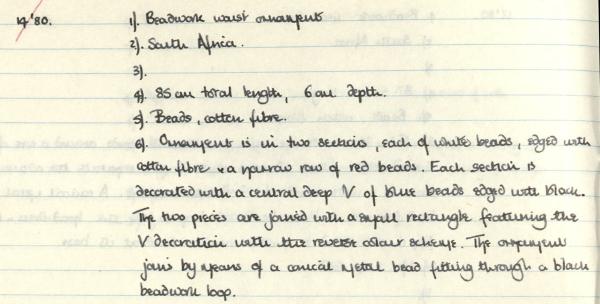 14'80.
1). Beadwork waist ornament
2). South Africa.
3).
4). 85 cm total length, 6 cm depth.
5). Beads, cotton fibre.
6). Ornament is in two sections, each of white beads, edged with
cotton fibre & a narrow row of red beads. Each section is
decorated with a central deep V of blue beads edged with black.
The two pieces are joined with a small rectangle featuring the
V decoration with the reverse colour scheme. The ornament
joins by means of a conical metal bead fitting through a black
beadwork loop.